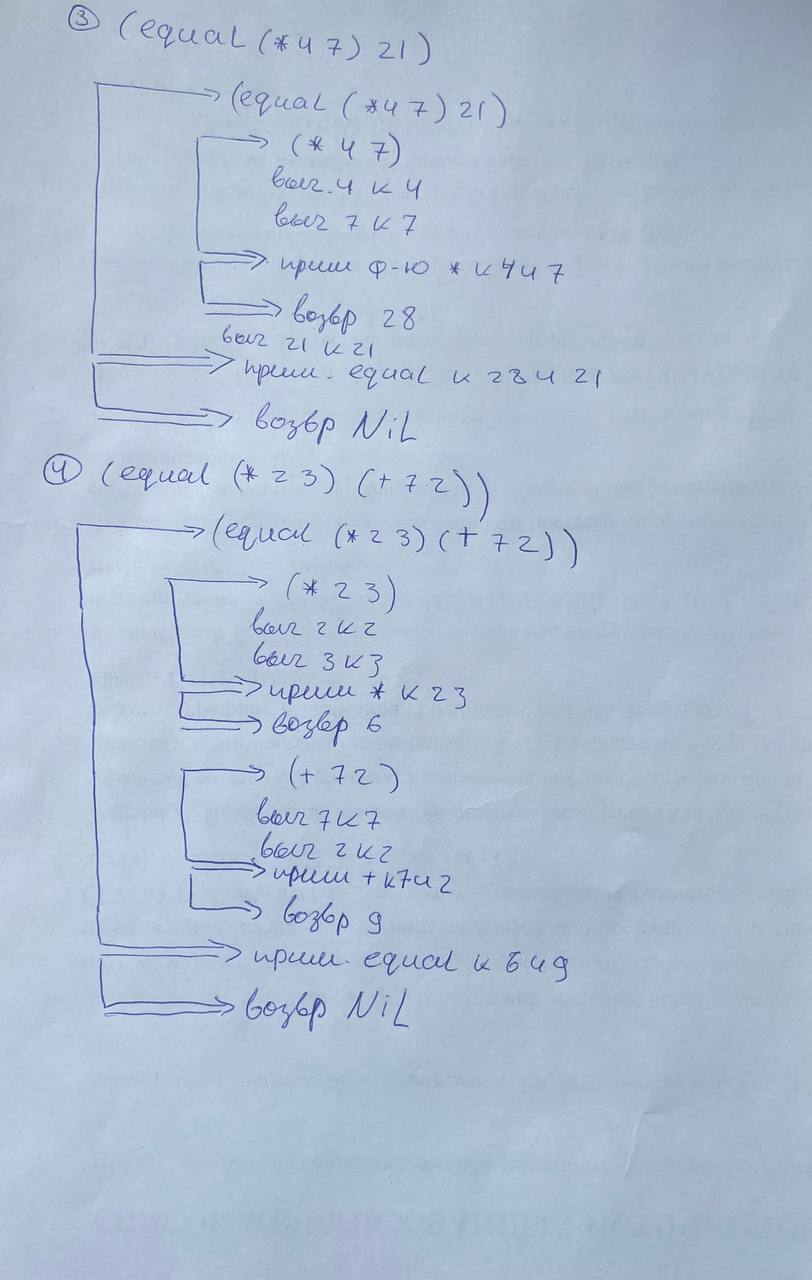 ③ (equal (* 4 7) 21)
(equal (* 4 7) 21)
(* 4 7)
выч. 4 к 4
выч 7 к 7
прим ф-ю * к 4 и 7
возвр 28
выч 21 к 21
прим. equal к 28 и 21
возвр NiL
④ (equal (* 2 3) (+ 7 2))
(equal (* 2 3) (+ 7 2))
(* 2 3)
выч 2 к 2
выч 3 к 3
прим * к 2 3
возвр 6
(+ 7 2)
выч 7 к 7
выч 2 к 2
прим + к 7 и 2
возвр 9
прим. equal к 6 и 9
возвр NiL